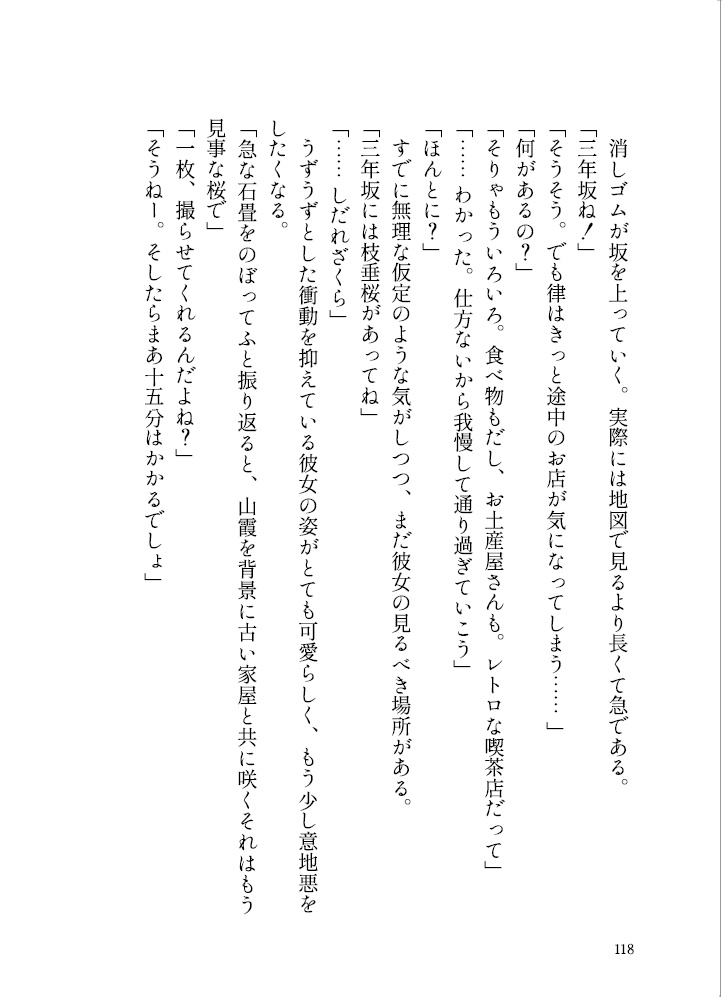 消しゴムが坂を上っていく。実際には地図で見るより長くて急である。
「三年坂ね！」
「そうそう。でも律はきっと途中のお店が気になってしまう……」
「何があるの？」
「そりゃもういろいろ。食べ物もだし、お土産屋さんも。レトロな喫茶店だって」
「……わかった。仕方ないから我慢して通り過ぎていこう」
「ほんとに？」
すでに無理な仮定のような気がしつつ、まだ彼女の見るべき場所がある。
「三年坂には枝垂桜があってね」
「……しだれざくら」
うずうずとした衝動を抑えている彼女の姿がとても可愛らしく、もう少し意地悪を
したくなる。
「急な石畳をのぼってふと振り返ると、山霞を背景に古い家屋と共に咲くそれはもう
見事な桜で」
「一枚、撮らせてくれるんだよね？」
「そうねー。そしたらまあ十五分はかかるでしょ」
118